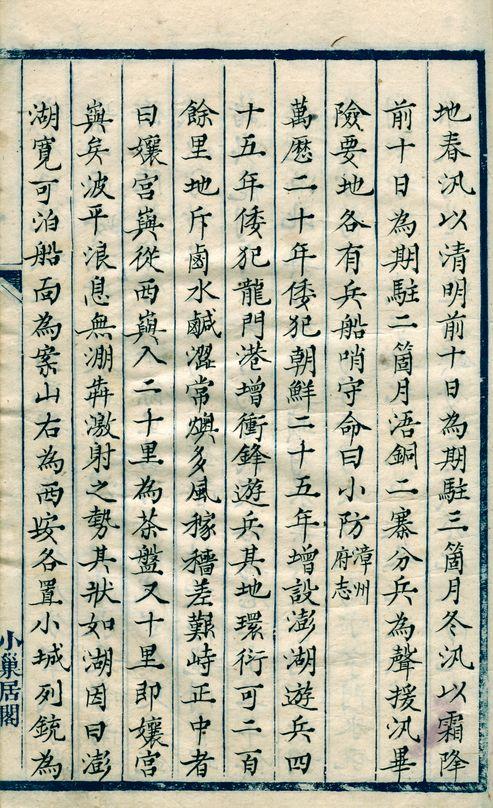 地春汛以清明前十日為期駐三箇月冬汛以霜降
前十日為期駐二箇月浯銅二寨分兵為聲援汛畢
險要地各有兵船哨守命曰小防漳州府志
萬厯二十年倭犯朝鮮二十五年增設澎湖遊兵四
十五年倭犯龍門港增衝鋒遊兵其地環衍可二百
餘里地斥鹵水鹹澀常燠多風稼穡差艱峙正中者
曰孃宮嶼從西嶼入二十里為茶盤又十里即孃宮
嶼矣波平浪息無淜奔激射之勢其狀如湖因曰澎
湖寬可泊船面為案山右為西安各置小城列銃為
小巢居閣